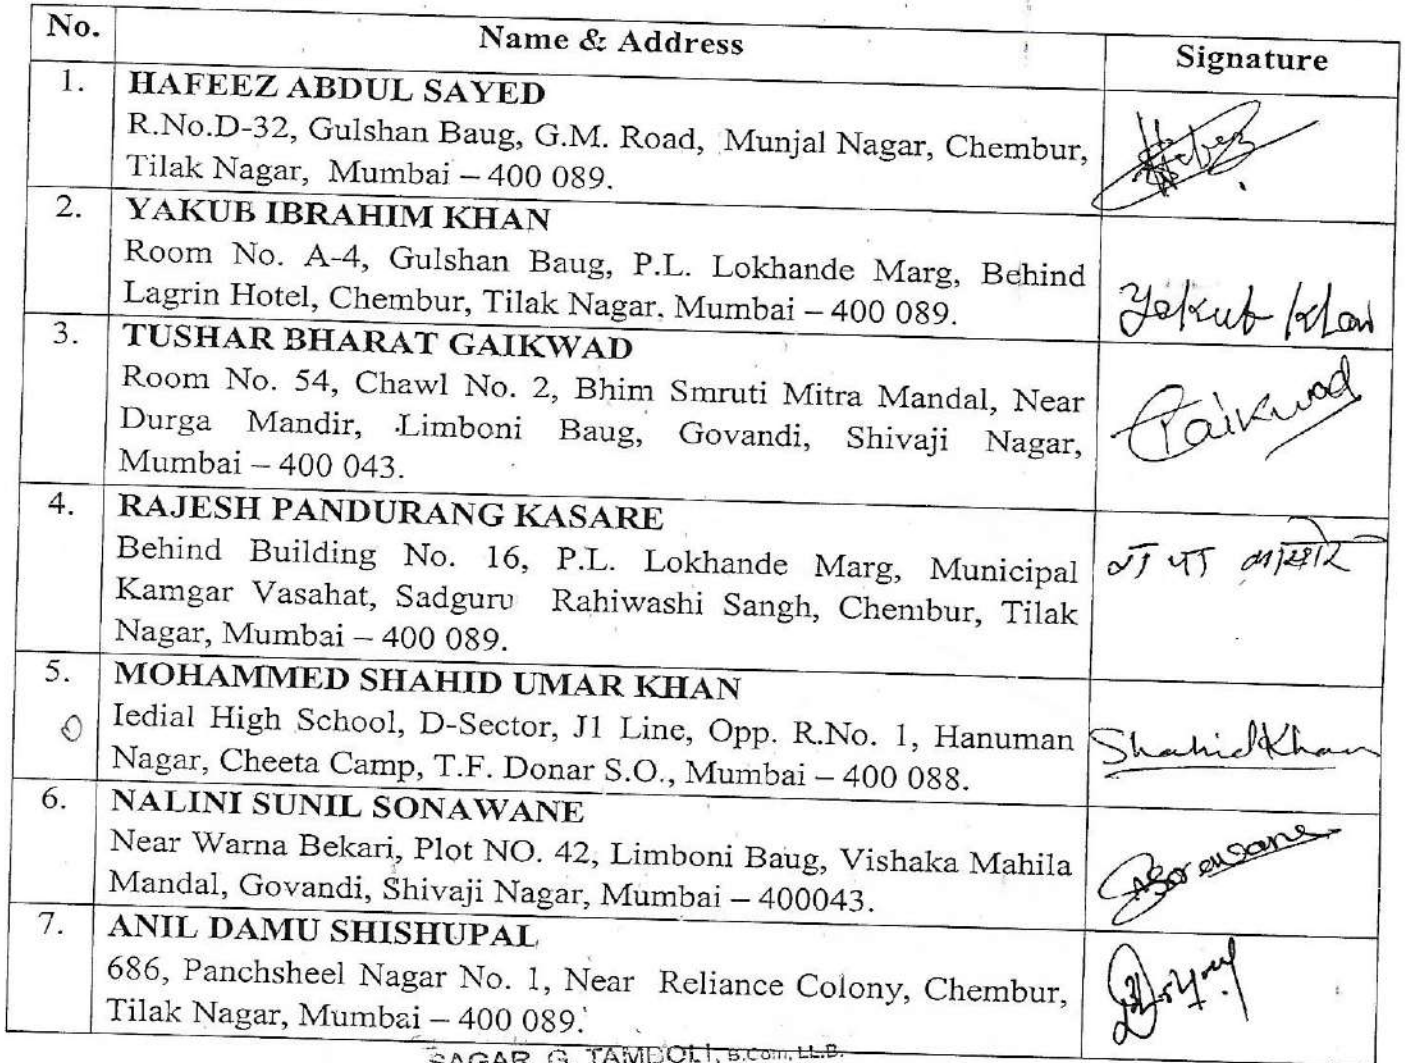 No. Name & Address Signature
1. HAFEEZ ABDUL SAYED
R.No.D-32, Gulshan Baug, G.M. Road, Munjal Nagar, Chembur,
Tilak Nagar, Mumbai – 400 089.
2. YAKUB IBRAHIM KHAN
Room No. A-4, Gulshan Baug, P.L. Lokhande Marg, Behind
Lagrin Hotel, Chembur, Tilak Nagar, Mumbai – 400 089.
Yakub Khan
3. TUSHAR BHARAT GAIKWAD
Room No. 54, Chawl No. 2, Bhim Smruti Mitra Mandal, Near
Durga Mandir, Limboni Baug, Govandi, Shivaji Nagar,
Mumbai – 400 043.
Gaikwad
4. RAJESH PANDURANG KASARE
Behind Building No. 16, P.L. Lokhande Marg, Municipal
Kamgar Vasahat, Sadguru Rahiwashi Sangh, Chembur, Tilak
Nagar, Mumbai – 400 089.
5. MOHAMMED SHAHID UMAR KHAN
Iedial High School, D-Sector, J1 Line, Opp. R.No. 1, Hanuman
Nagar, Cheeta Camp, T.F. Donar S.O., Mumbai – 400 088.
Shahid Khan
6. NALINI SUNIL SONAWANE
Near Warna Bekari, Plot NO. 42, Limboni Baug, Vishaka Mahila
Mandal, Govandi, Shivaji Nagar, Mumbai – 400043.
7. ANIL DAMU SHISHUPAL
686, Panchsheel Nagar No. 1, Near Reliance Colony, Chembur,
Tilak Nagar, Mumbai – 400 089.
SAGAR G. TAMBOLI, B.Com, LL.B.